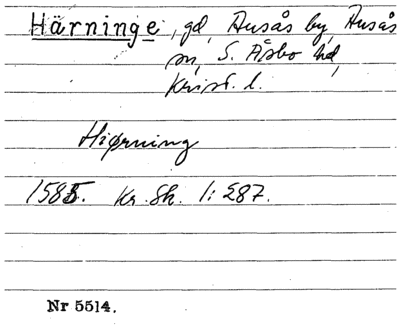 Härninge, gd, Ausås by, Ausås
sn, S. Åsbo hd,
Krist. l.
Hiørning
1585. Kr. Sk. 1:287.
Nr 5514.